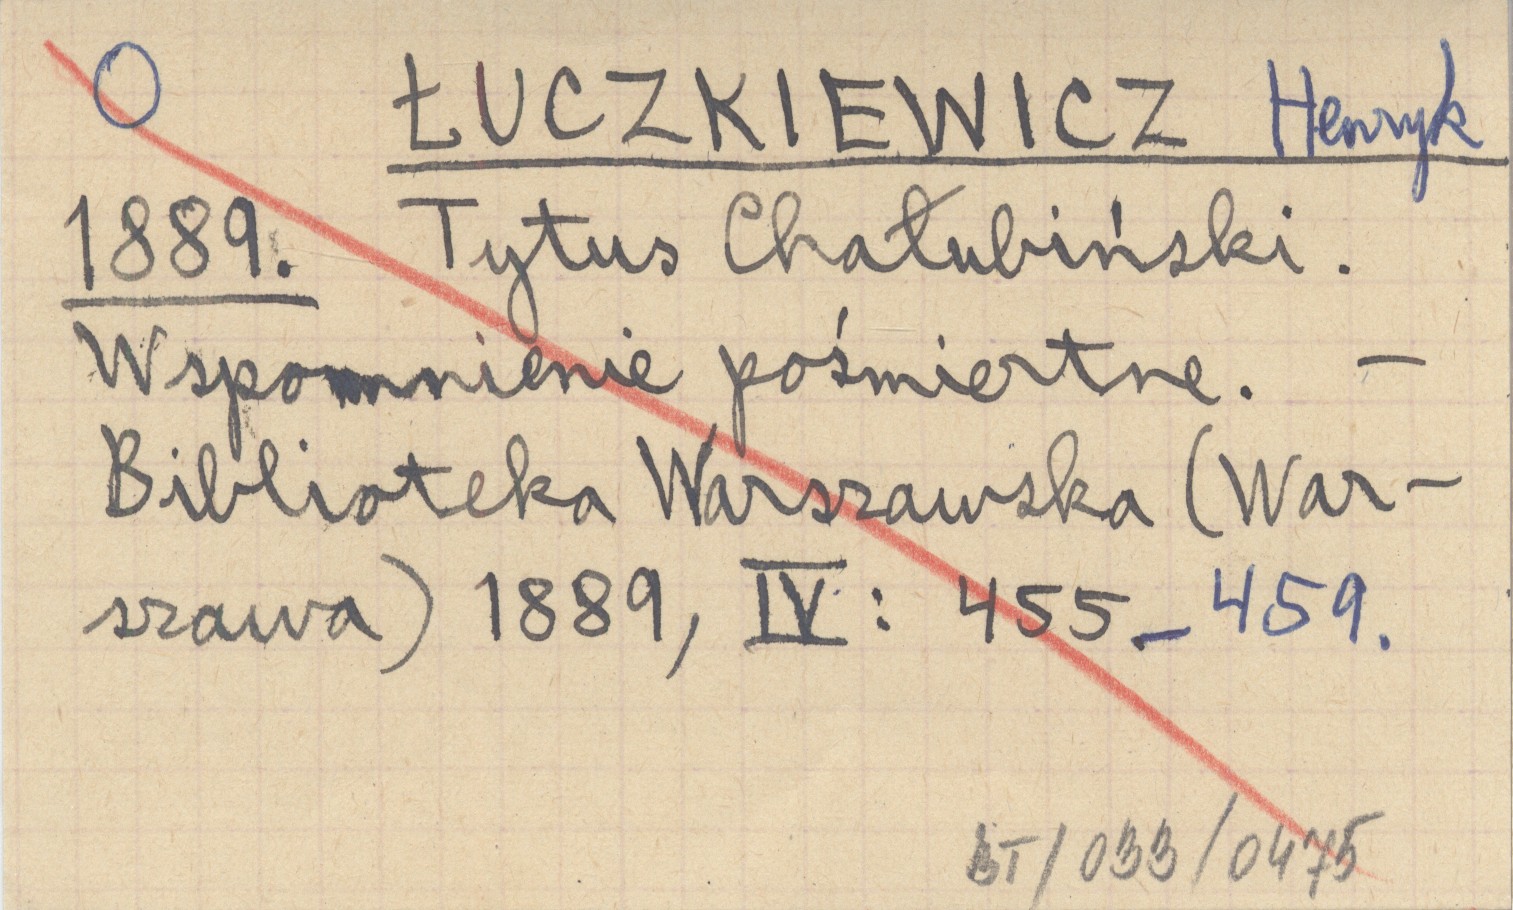 ŁUCZKIEWICZ Henryk
1889. Tytus Chałubiński.
Wspomnienie pośmiertne. –
Biblioteka Warszawska (War-
szawa) 1889, IV : 455 – 459.
BT/033/0475